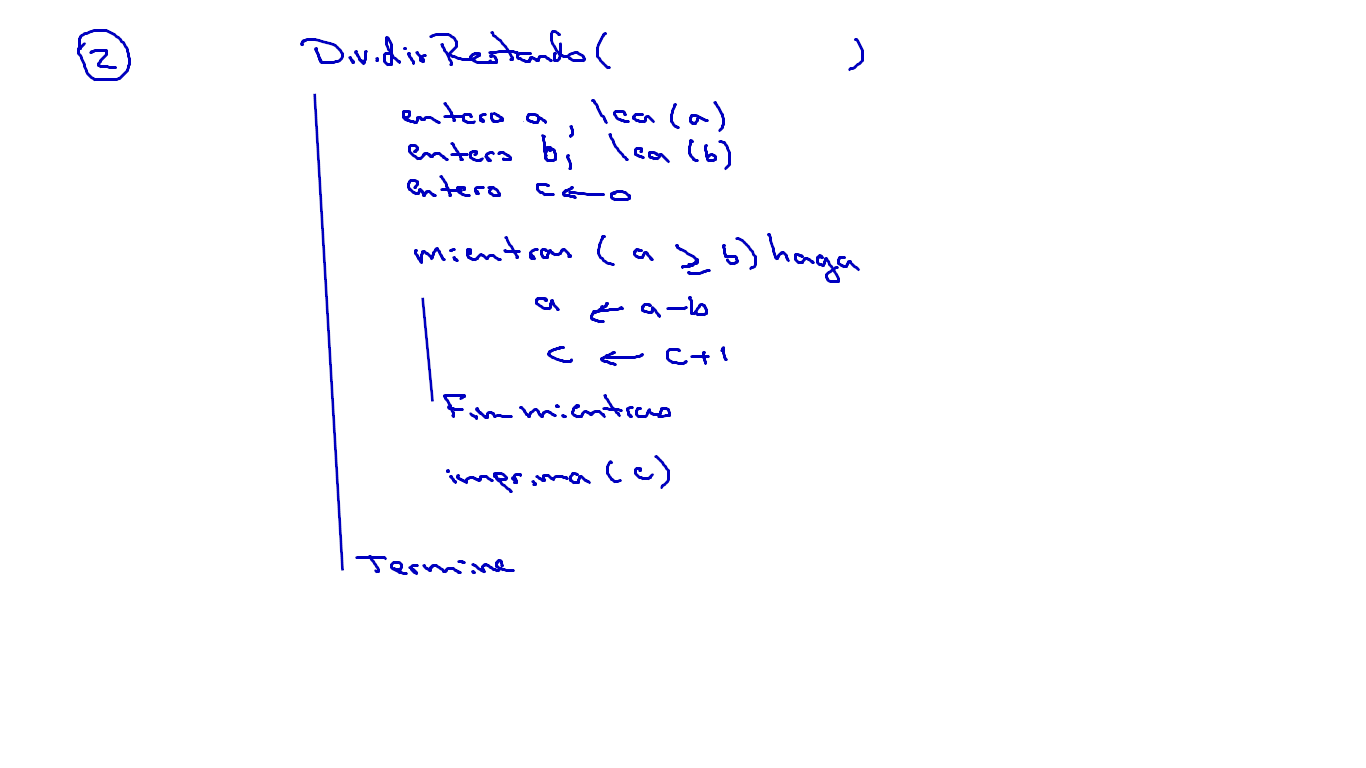 2 DividirRestando( )
entero a, lea(a)
entero b, lea(b)
entero c ← 0
mientras (a ≥ b) haga
a ← a-b
c ← c+1
Fin mientras
imprima(c)
Termine